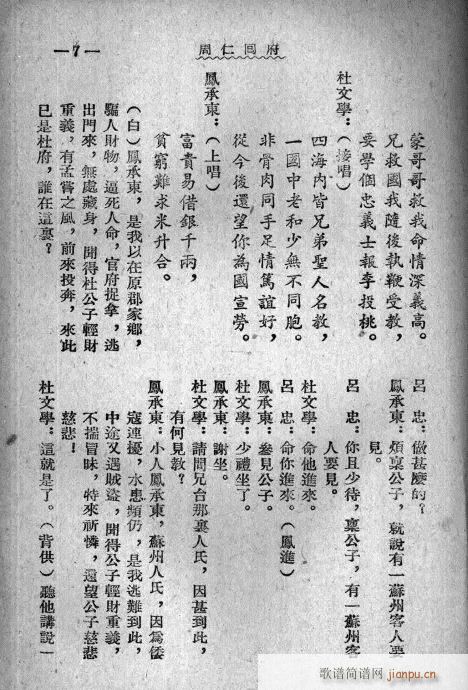 周仁回府
—7—
蒙哥哥救我命情深義高。
兄救國我隨後執鞭受教，
要學個忠義士報李投桃。
杜文學：（接唱）
四海內皆兄弟聖人名教，
一國中老和少無不同胞。
非骨肉同手足情篤誼好，
從今後還望你為國宣勞。
鳳承東：（上唱）
富貴易借銀千兩，
貧窮難求米升合。
（白）鳳承東，是我以在原郡家鄉，
騙人財物，逼死人命，官府捉拿，逃
出門來，無處藏身，聞得杜公子輕財
重義，有孟嘗之風，前來投奔，來此
已是杜府，誰在這裏？
呂　忠：做甚麼的？
鳳承東：煩稟公子，就說有一蘇州客人要
見。
呂　忠：你且少待，稟公子，有一蘇州客
人要見。
杜文學：命他進來。
呂　忠：命你進來。（鳳進）
鳳承東：參見公子。
杜文學：少禮坐了。
鳳承東：謝坐。
杜文學：請問兄台那裏人氏，因甚到此，
有何見教？
鳳承東：小人鳳承東，蘇州人氏，因為倭
寇連擾，水患頻仍，是我逃難到此，
中途又遇賊盜，聞得公子輕財重義，
不揣冒昧，特來祈憐，還望公子慈悲
慈悲！
杜文學：這就是了。（背供）聽他講說一
歌谱简谱网
jianpu.cn